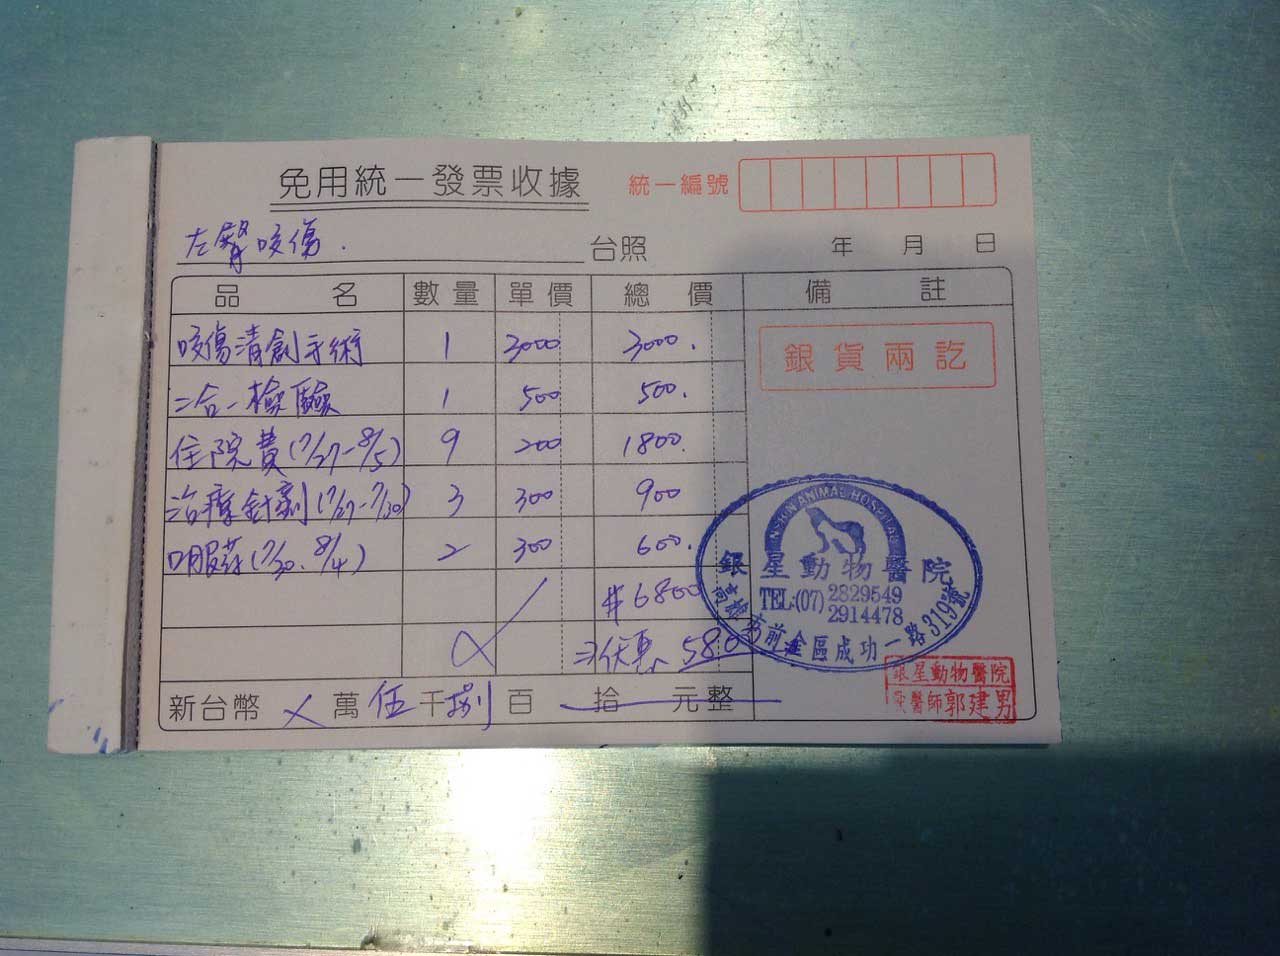 免用統一發票收據
統一編號
左臀咬傷.
台照 年 月 日
品名 數量 單價 總價 備註
咬傷清創手術 1 3000 3000.
二合一檢驗 1 500 500.
住院費(7/27-8/5) 9 200 1800.
治療針劑(7/27-7/30) 3 300 900
口服药(7/30、8/4) 2 300 600.
#6800
⇒优惠 580
新台幣 X 萬 伍 千 捌 百 拾 元整
銀貨兩訖
NSHIN ANIMAL HOSPITAL
銀星動物醫院
TEL:(07) 2829549
2914478
高雄市前金區成功一路319號
銀星動物醫院
獸醫師郭建男